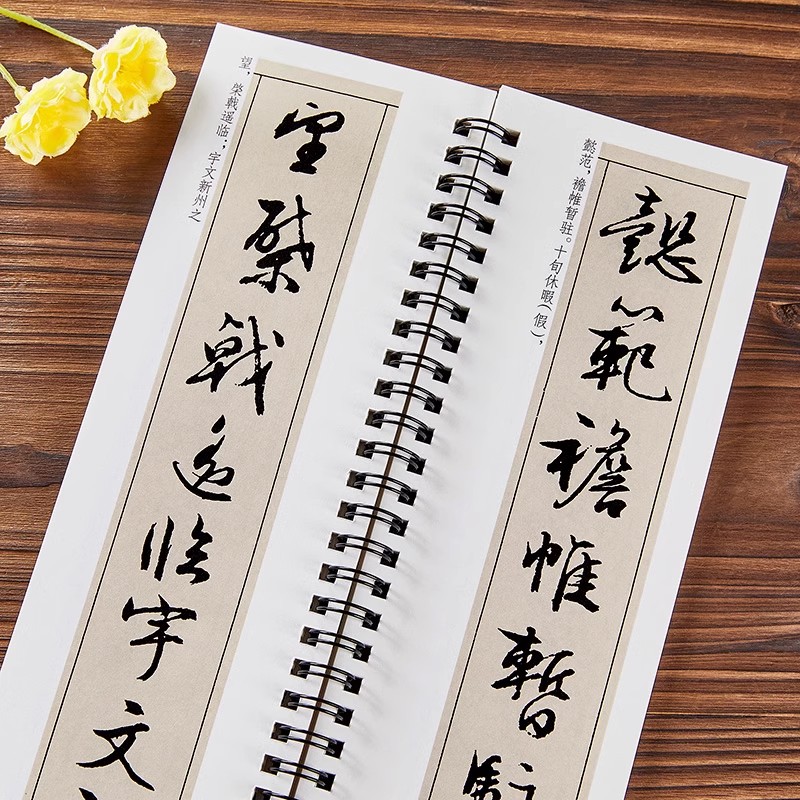 望，棨戟遥临；宇文新州之
望棨戟遥临宇文
懿范，襜帷暂驻。十旬休暇(假)，
懿範襜帷暫駐